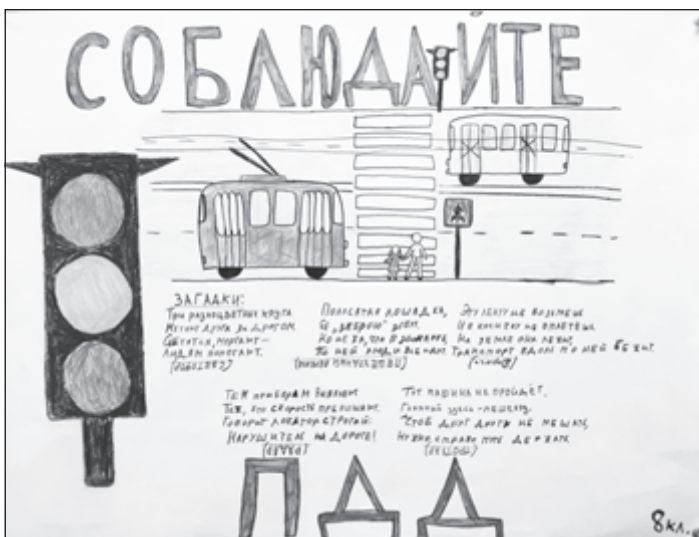 СОБЛЮДАЙТЕ
ЗАГАДКИ:
Три разноцветных круга
друг за другом
Светятся, моргают –
Людям помогают.
Полосатая лошадка,
Её „зеброю" зовут.
Но не та, что в зоопарке,
По ней люди все идут.
Эту ленту не возьмёшь
И в косичку не вплетёшь.
На земле она лежит,
Транспорт вдоль по ней бежит.
Тем прибором выявляют
Тех, кто скорость превышает.
Говорит локатор строгий:
Нарушитель на дороге!
Тут машина не пройдёт.
Главный здесь – пешеход.
Чтоб друг друга не мешать,
Нужно справа путь держать.
ПДД
8кл.